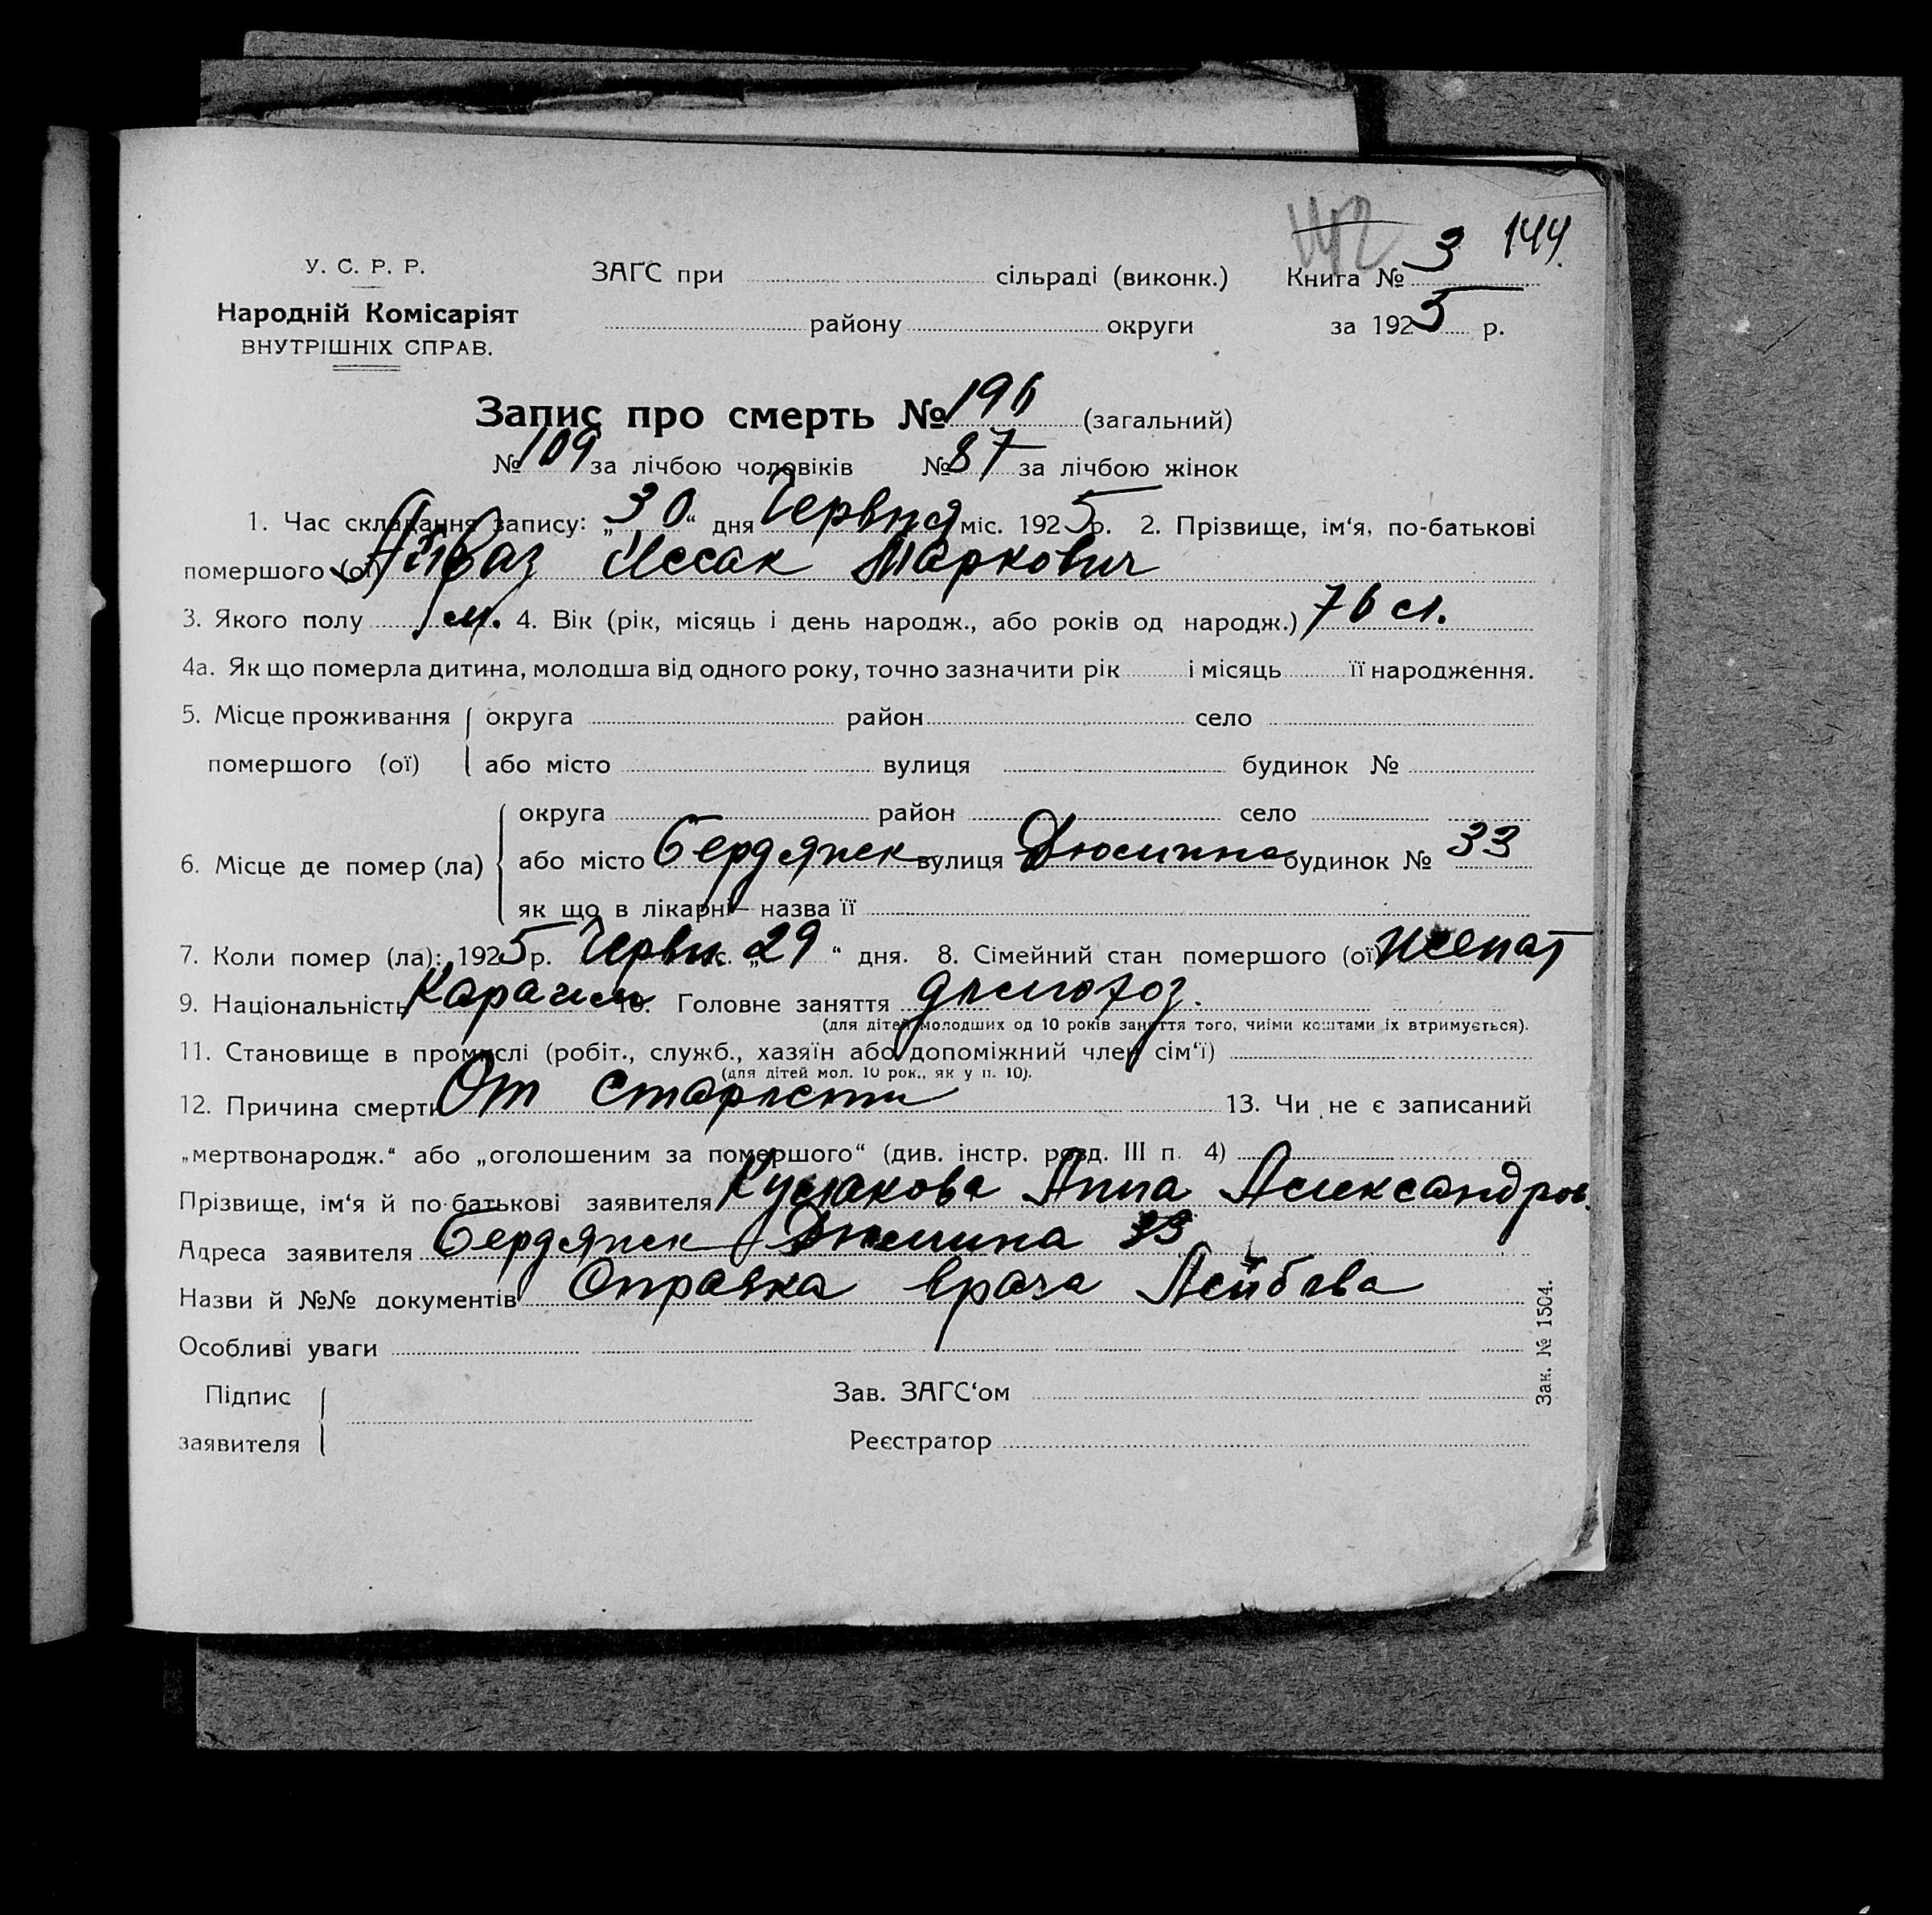 142 144.
У. С. Р. Р. ЗАГС при сільраді (виконк.) Книга № 3
Народній Комісаріят району округи за 1925 р.
ВНУТРІШНІХ СПРАВ.
Запис про смерть № 196 (загальний)
№ 109 за лічбою чоловіків № 87 за лічбою жінок
1. Час складання запису: „30“ дня Червня міс. 1925 р. 2. Прізвище, ім‘я, по-батькові
помершого (ої) Айваз Иссак Маркович
3. Якого полу м. 4. Вік (рік, місяць і день народж., або років од народж.) 76 л.
4а. Як що померла дитина, молодша від одного року, точно зазначити рік і місяць її народження.
5. Місце проживання округа район село
помершого (ої) або місто вулиця будинок №
округа район село
6. Місце де помер (ла) або місто Бердянск вулиця Дюмина будинок № 33
як що в лікарні — назва її
7. Коли помер (ла): 1925 р. Червн. міс. „29“ дня. 8. Сімейний стан помершого (ої) женат
9. Національність Караим 10. Головне заняття
(для дітей молодших од 10 років заняття того, чиїми коштами їх втримується).
11. Становище в промислі (робіт., служб., хазяїн або допоміжний член сім‘ї)
(для дітей мол. 10 рок., як у п. 10).
12. Причина смерти От старости 13. Чи не є записаний
„мертвонародж.“ або „оголошеним за помершого“ (див. інстр. розд. III п. 4)
Прізвище, ім‘я й по-батькові заявителя Кулакова Анна Александров.
Адреса заявителя Бердянск Дюмина 33
Назви й №№ документів Справка врача Лейбова
Особливі уваги
Підпис Зав. ЗАГС‘ом
заявителя Реєстратор
Зак. № 1504.